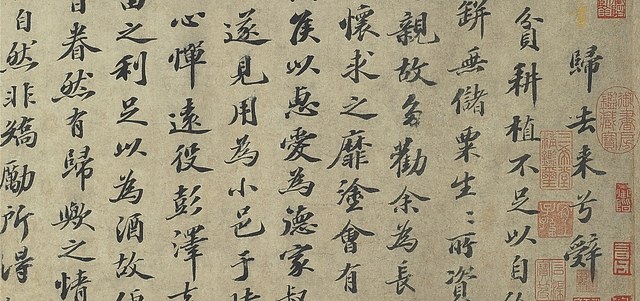 歸去来兮辤
貧耕植不足以自
缾無儲粟生〻所資
親故多勸余為長
懷求之靡塗會有
侯以惠愛為德家叔
遂見用為小邑于時
心憚遠役彭澤去
田之利足以為酒故便
日眷然有歸歟之情
自然非矯勵所得